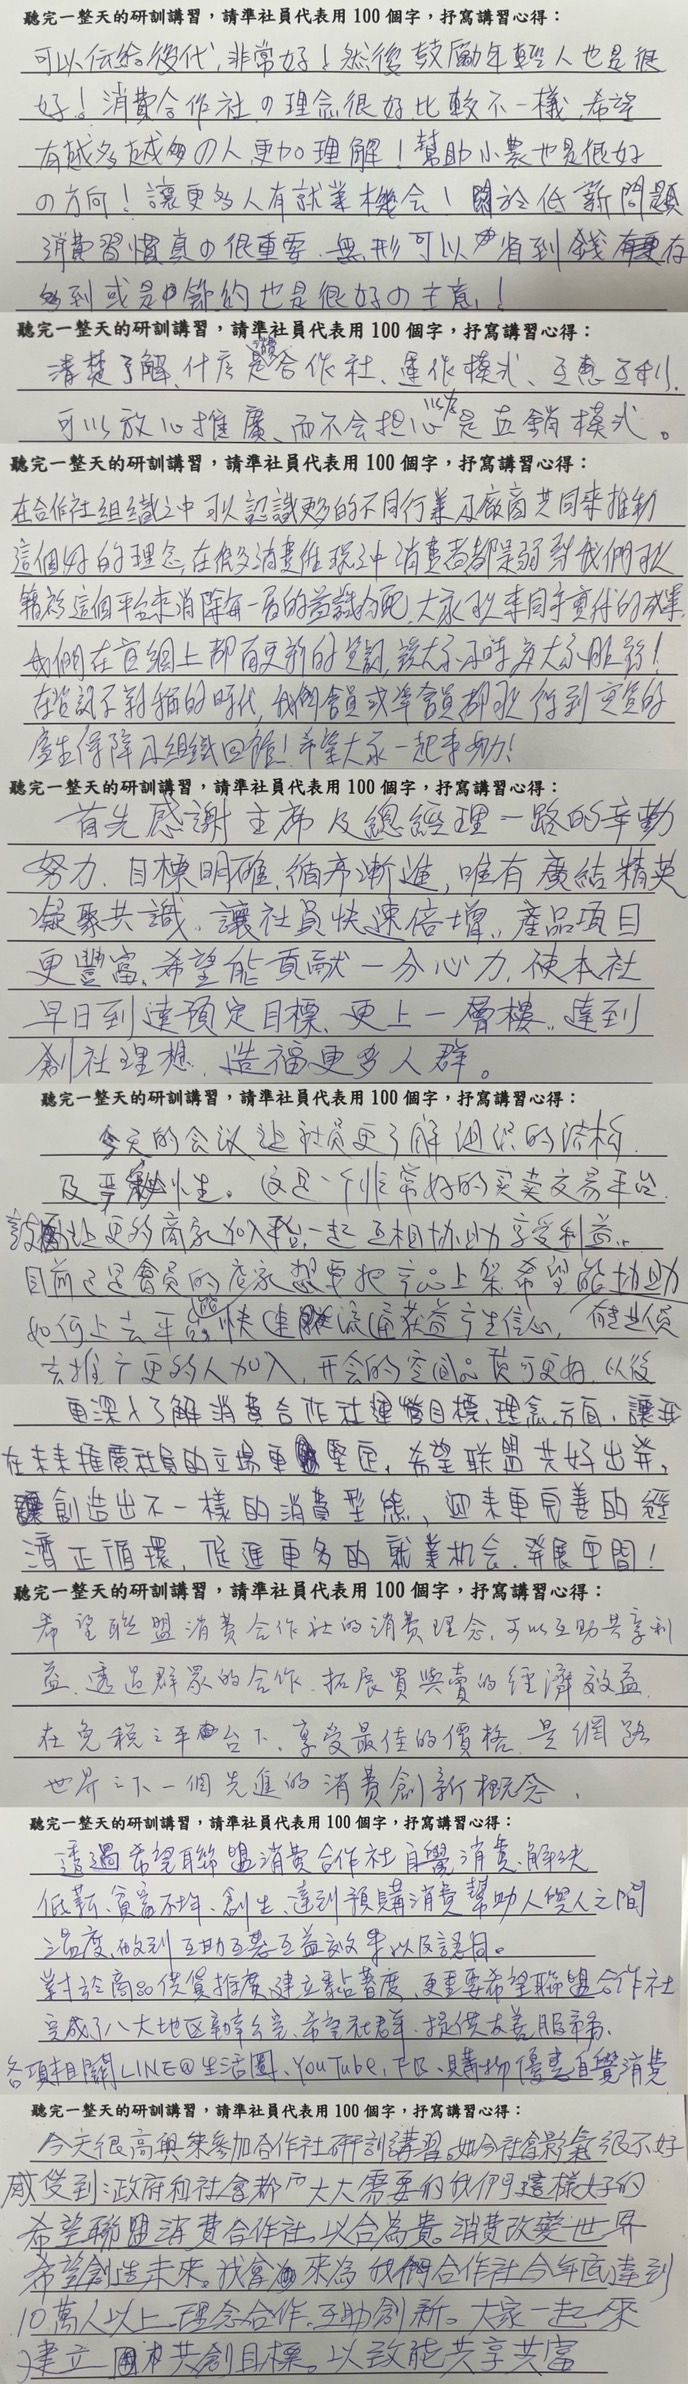 聽完一整天的研訓講習，請準社員代表用 100 個字，抒寫講習心得：
可以伝給後代，非常好！然後鼓勵年輕人也是很
好！消費合作社の理念很好比較不一樣，希望
有越多越多の人更加理解！幫助小農也是很好
の方向！讓更多人有就業機会！關於低薪問題
消費習慣真の很重要，無形可以省到錢 存
到或是節約也是很好の主意！
聽完一整天的研訓講習，請準社員代表用 100 個字，抒寫講習心得：
清楚了解、什広是消費合作社、運作模式、互惠互利.
可以放心推廣、而不会担心以為是直銷模式。
聽完一整天的研訓講習，請準社員代表用 100 個字，抒寫講習心得：
在合作社組織之中可以認識更多的不同行業及廠商共同來推動
這個好的理念,在很多消費循環之中消費者都是弱勢我們可以
藉為這個平台來消除每一層的 分配,大家 來同享 的成果,
我們在官網上都有更新的資訊, 大家 大家服務!
在資訊不對稱的時代,我們會員或準會員都可 得到實質的
產生保障及組織回饋!希望大家一起來努力!
聽完一整天的研訓講習，請準社員代表用 100 個字，抒寫講習心得：
首先感謝主席及總經理一路的辛勤
努力，目標明確，循序漸進，唯有廣結精英
凝聚共識。讓社員快速倍增，產品項目
更豐富，希望能貢獻一分心力，使本社
早日到達預定目標，更上一層樓，達到
創社理想，造福更多人群。
聽完一整天的研訓講習，請準社員代表用 100 個字，抒寫講習心得：
今天的会议让社員更了解组织的结构.
及 性。这是一个非常好的买卖交易平台.
鼓勵让更多商家加入平台,一起互相协助享受利益。
目前已是會員的店家想要把产品上架希望能协助
如何上去平台,能快速 流通获益产生信心,
去推广更多人加入,开会的空间品质可更好,以後
更深入了解消費合作社運營目標,理念,方向,讓我
在未來推廣社員的立場更堅定,希望联盟共好出発,
創造出不一樣的消費型態,迎來更完善的經
濟正循環,促進更多的就業机会,発展空間!
聽完一整天的研訓講習，請準社員代表用 100 個字，抒寫講習心得：
希望聯盟消費合作社的消費理念,可以互助共享利
益,透過群眾的合作,拓展買與賣的經濟效益,
在免税之平台下,享受最佳的價格,是網路
世界之下一個先進的消費創新概念.
聽完一整天的研訓講習，請準社員代表用 100 個字，抒寫講習心得：
透過希望聯盟消費合作社自覺消費、解決
低薪、貧富不均、創生、達到預購消費幫助人與人之間
溫度,做到互助互惠互益效果以及認同。
對於商品供貨推廣建立黏著度,更重要希望聯盟合作社
完成了八大地區辦公室、希望社群、提供友善服務,
各項相關LINE@生活圈、YouTube, FB、購物優惠自覺消費
聽完一整天的研訓講習，請準社員代表用 100 個字，抒寫講習心得：
今天很高興來參加合作社研訓講習,如今社會景氣很不好
感受到:政府和社會都大大需要的我們這樣好的
希望聯盟消費合作社。以合為貴。消費改變世界
希望創造未來。我會來為我們合作社今年底達到
10萬人以上,理念合作,互助創新。大家一起來
建立 共創目標。以致能共享共富